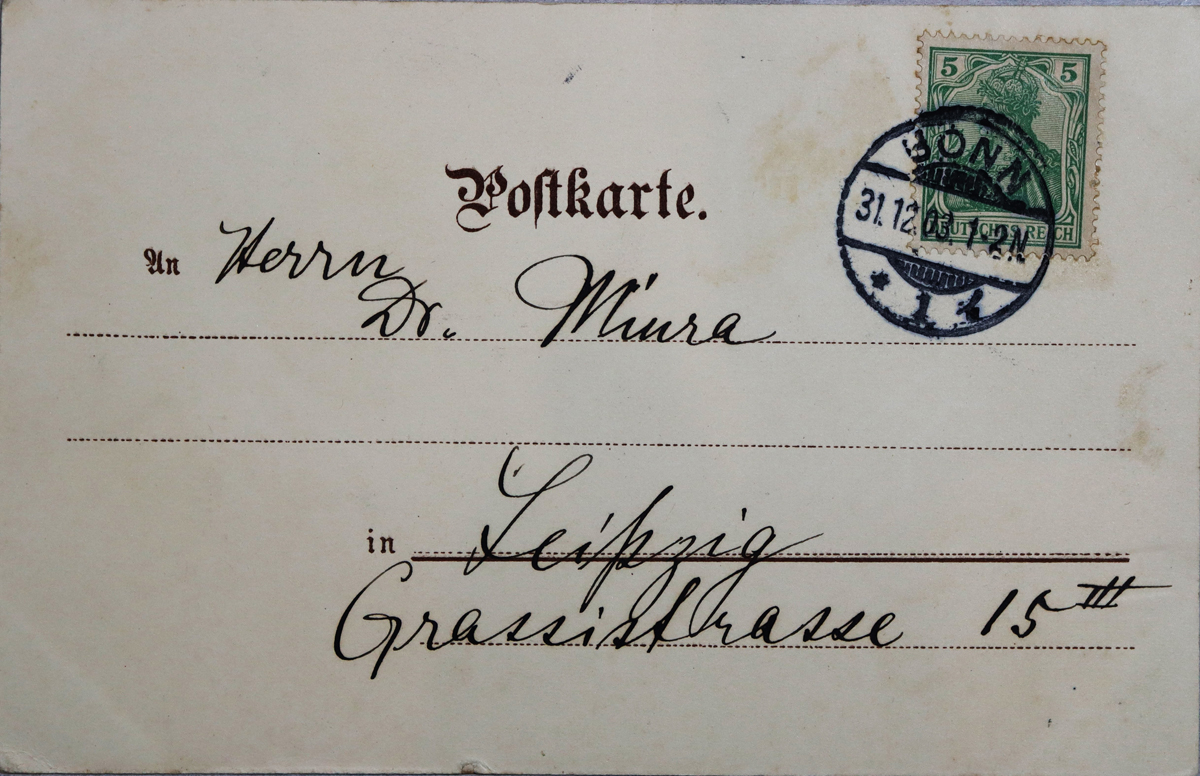 5 5
BONN
31.12.03. 1-2N
* 1
DEUTSCHES REICH
Postkarte.
An Herrn
Dr. Miura
in Leipzig
Grassistrasse 15 III